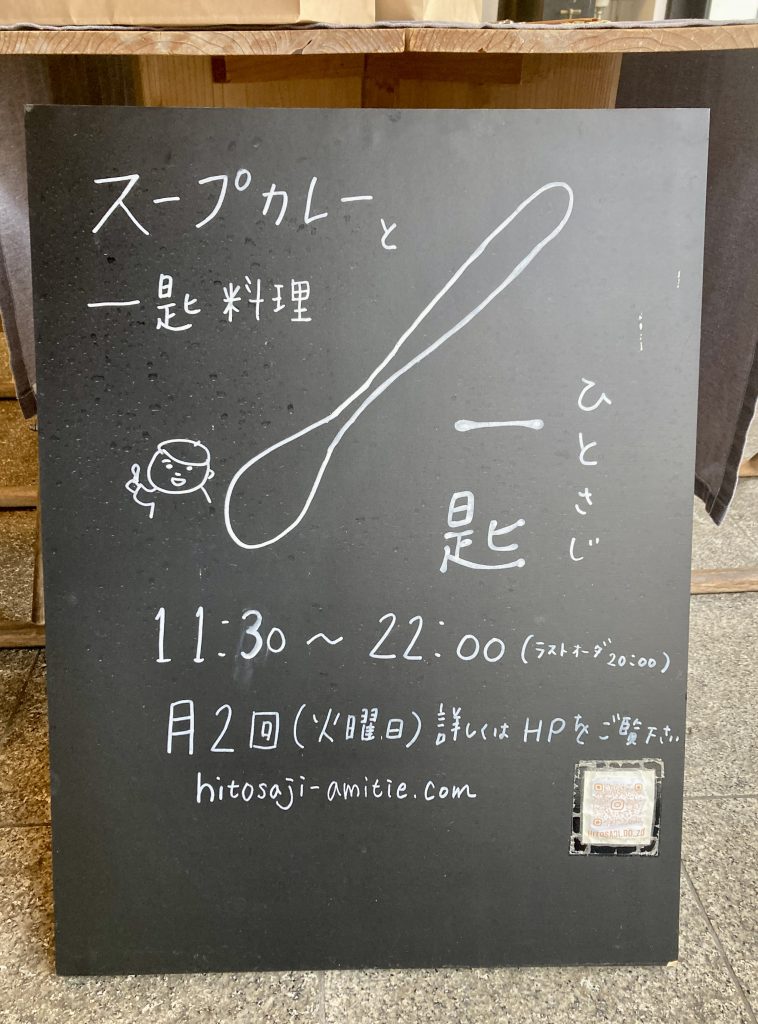 スープカレーと
一匙料理
一匙
ひとさじ
11:30〜22:00(ラストオーダ20:00)
月2回(火曜日)詳しくはHPをご覧下さい
hitosaji-amitie.com